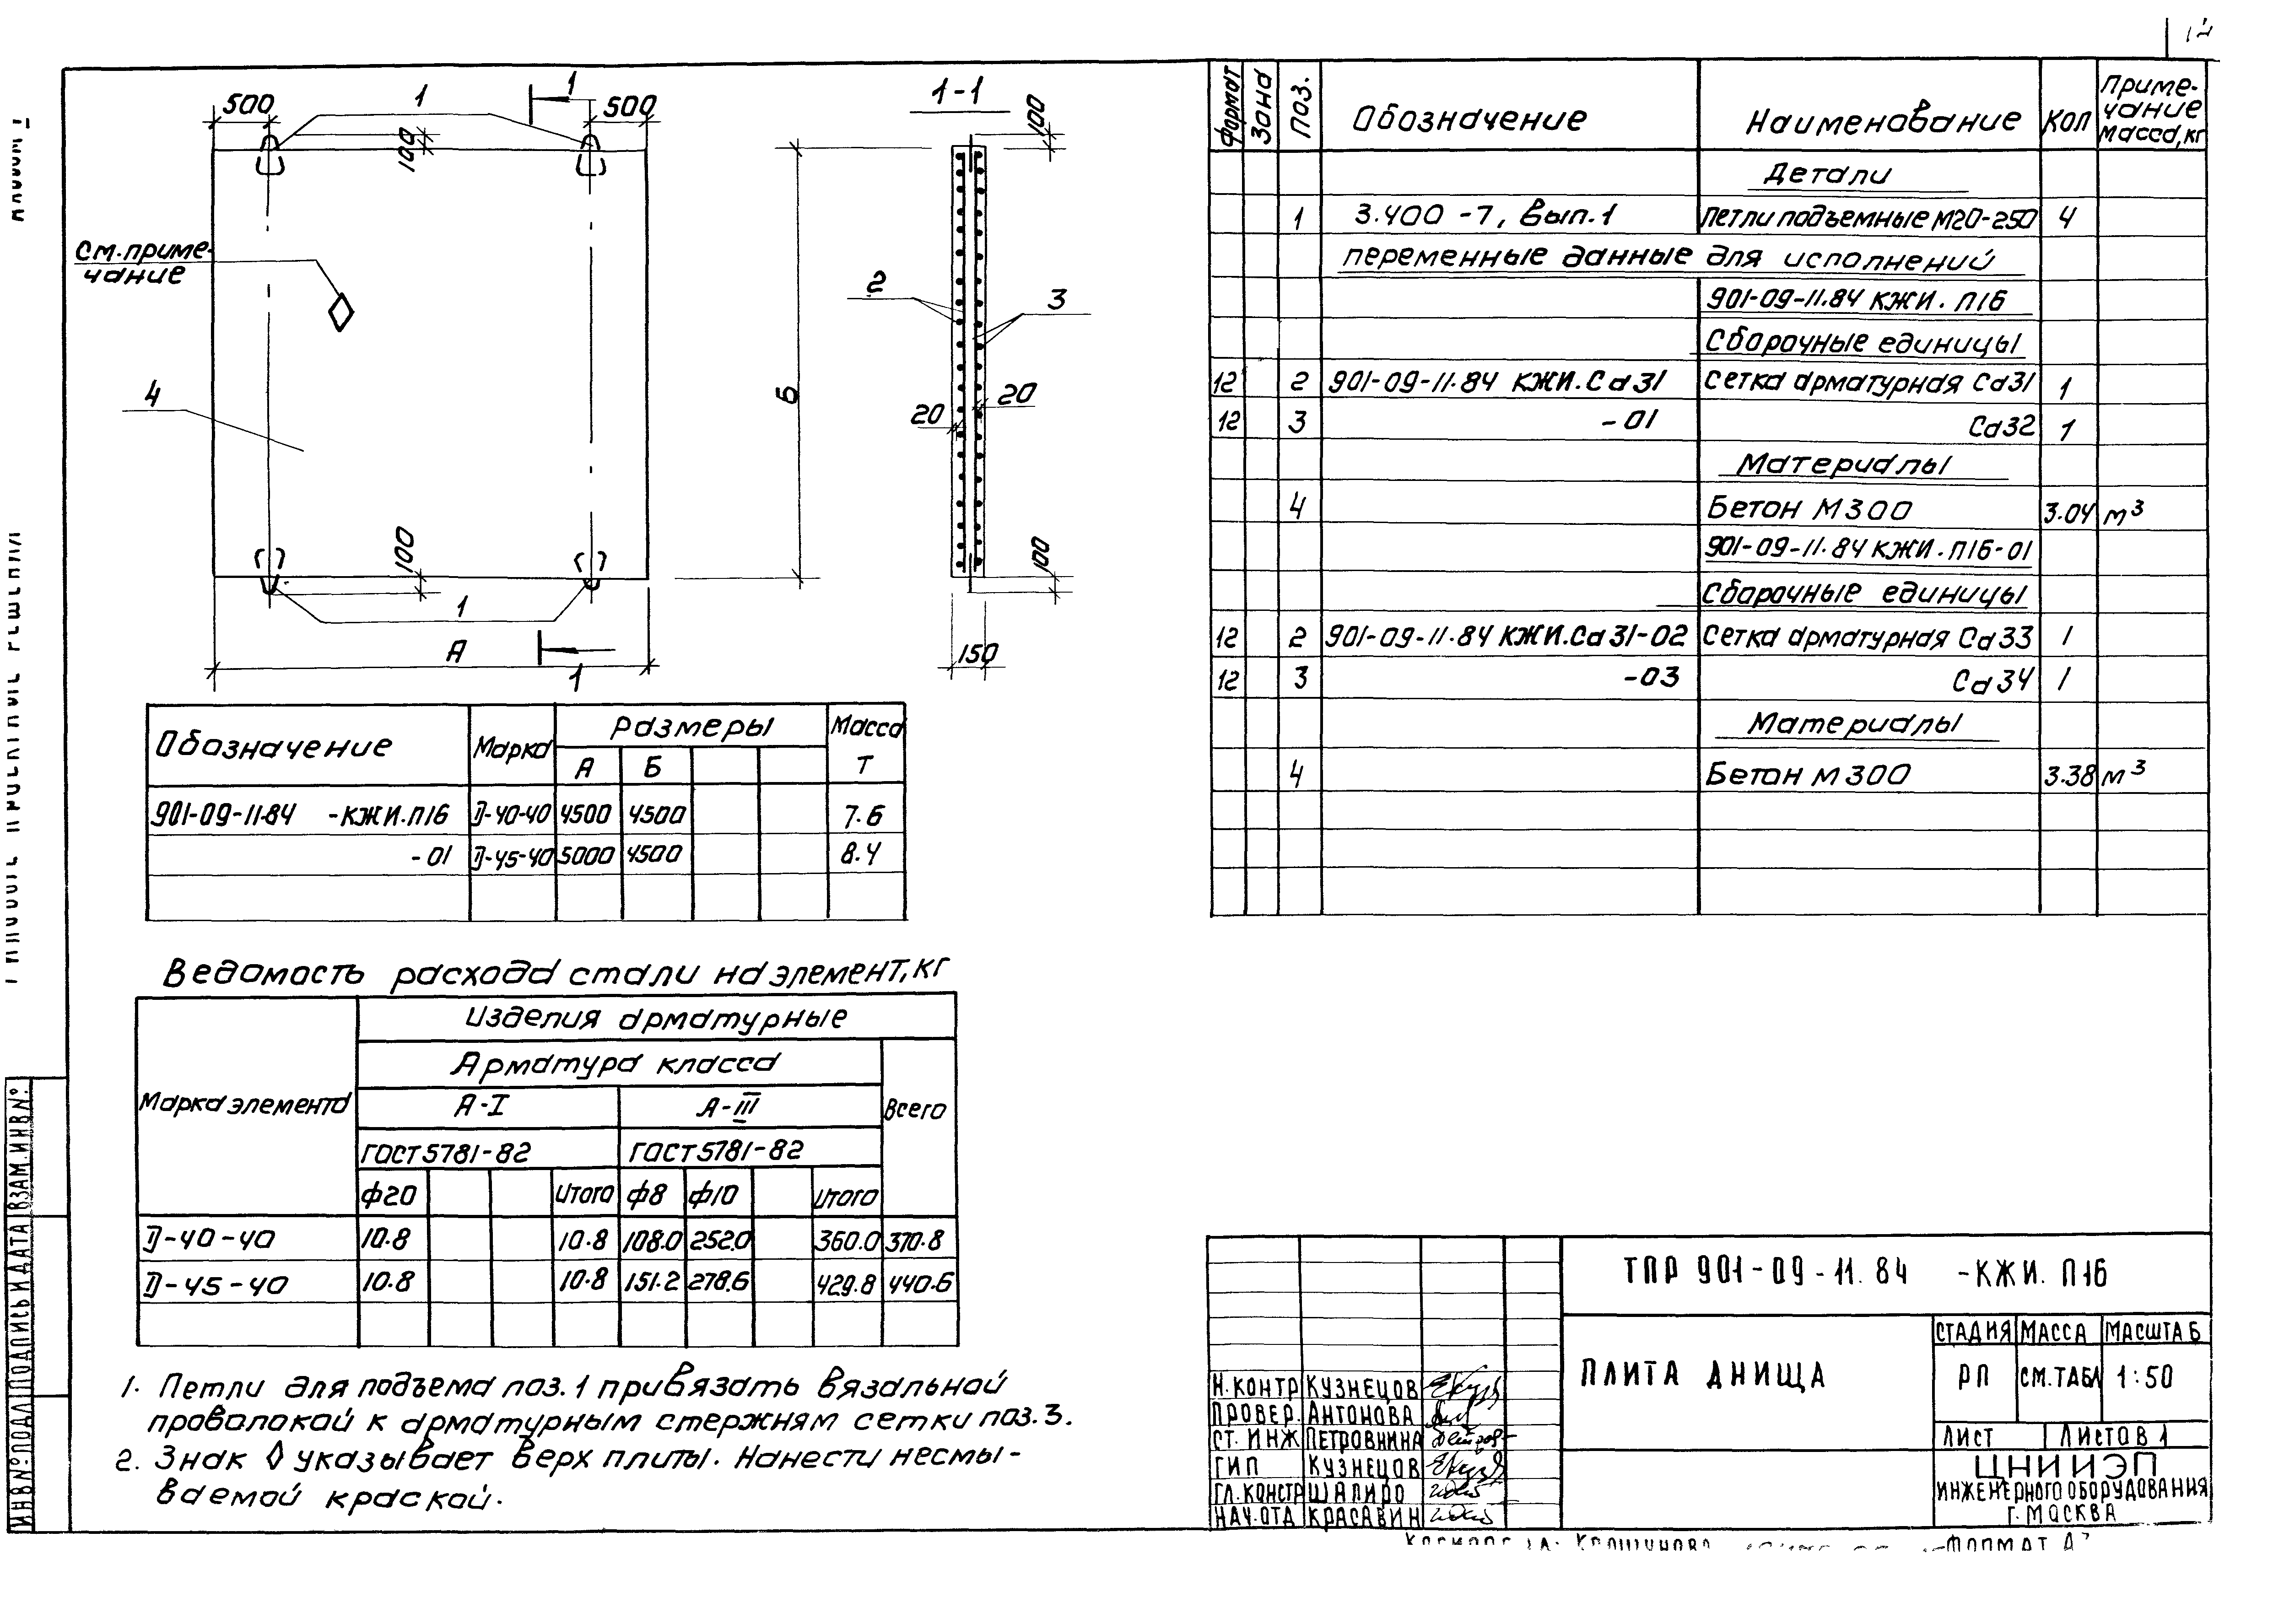 500
1
1
500
100
см. приме-
чание
4
100
1
А
1
Б
1-1
100
2
3
20
20
100
150
Обозначение
Марка
Размеры
Масса
т
А
Б
901-09-11.84 -КЖИ.П16
Д-40-40
4500
4500
7.6
-01
Д-45-40
5000
4500
8.4
Ведомость расхода стали на элемент, кг
Марка элемента
Изделия арматурные
Арматура класса
Всего
А-I
А-III
ГОСТ 5781-82
ГОСТ 5781-82
ф20
Итого
ф8
ф10
Итого
Д-40-40
10.8
10.8
108.0
252.0
360.0
370.8
Д-45-40
10.8
10.8
151.2
278.6
429.8
440.6
1. Петли для подъема поз. 1 привязать вязальной
проволокой к арматурным стержням сетки поз. 3.
2. Знак ◊ указывает верх плиты. Нанести несмы-
ваемой краской.
Формат
Зона
Поз.
Обозначение
Наименование
Кол
Приме-
чание
масса, кг
Детали
1
3.400-7, Вып. 1
Петли подъемные М20-250
4
переменные данные для исполнений
901-09-11.84 КЖИ. П16
Сборочные единицы
12
2
901-09-11.84 КЖИ.Са31
Сетка арматурная Са31
1
12
3
-01
Са32
1
Материалы
4
Бетон М300
3.04
м³
901-09-11.84 КЖИ.П16-01
Сборочные единицы
12
2
901-09-11.84 КЖИ.Са31-02
Сетка арматурная Са33
1
12
3
-03
Са34
1
Материалы
4
Бетон М300
3.38
м³
ТПР 901-09-11.84 -КЖИ. П16
ПЛИТА ДНИЩА
СТАДИЯ
МАССА
МАСШТАБ
РП
СМ.ТАБЛ
1:50
ЛИСТ
ЛИСТОВ 1
ЦНИИЭП
ИНЖЕНЕРНОГО ОБОРУДОВАНИЯ
Г. МОСКВА
Н.КОНТР
КУЗНЕЦОВ
ПРОВЕР.
АНТОНОВА
СТ. ИНЖ
ПЕТРОВНИНА
ГИП
КУЗНЕЦОВ
ГЛ.КОНСТР
ШАПИРО
НАЧ.ОТД
КРАСАВИН
ФОРМАТ
ИНВ№ПОДЛ
ПОДПИСЬ И ДАТА
ВЗАМ.ИНВ№